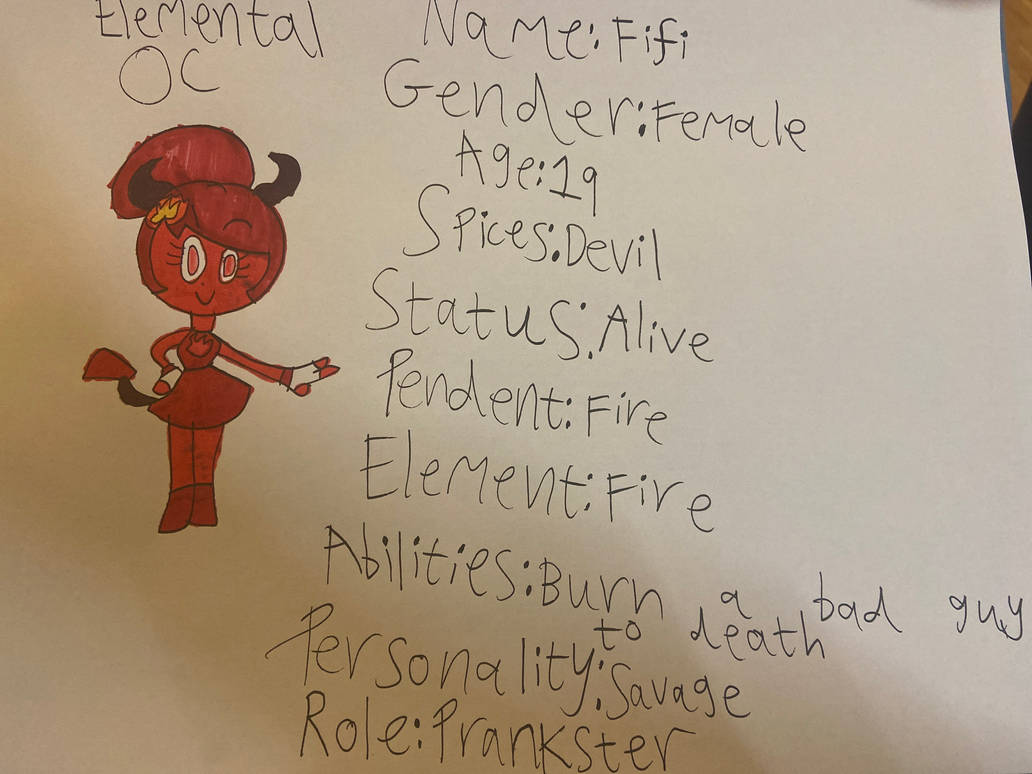 Elemental
OC
Name: Fifi
Gender: Female
Age: 19
Spices: Devil
Status: Alive
Pendent: Fire
Element: Fire
Abilities: Burn a bad guy
to death
Personality: Savage
Role: Prankster